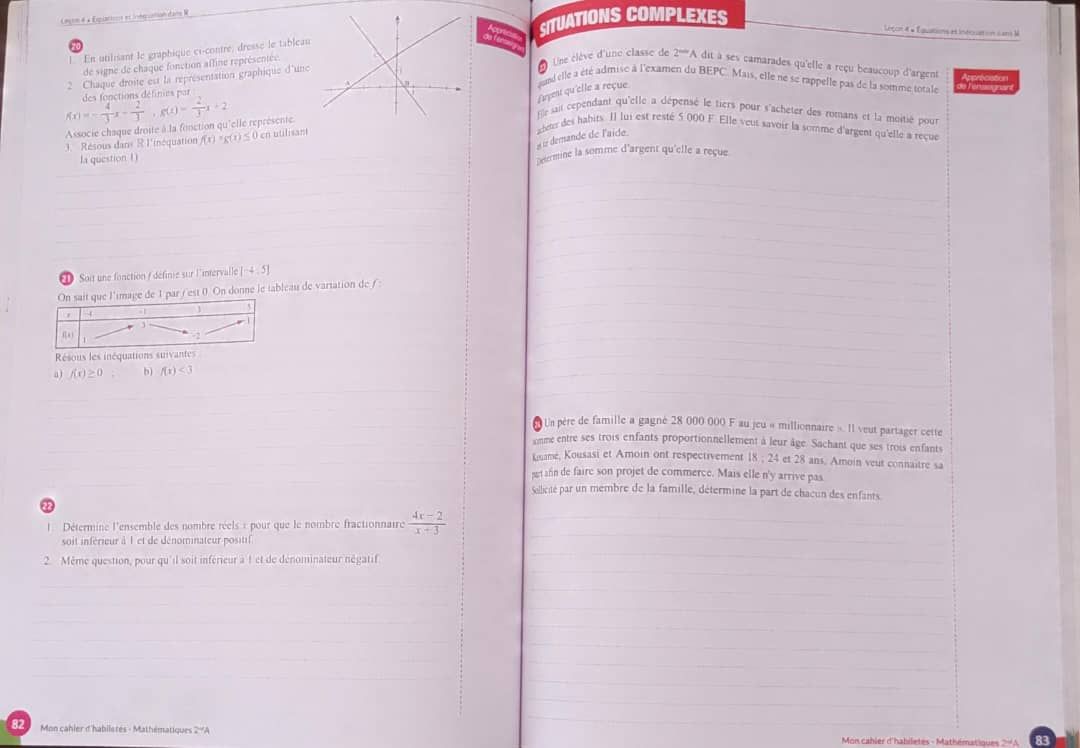 Leçon 4 • Equations et Inéquation dans ℝ
20
1. En utilisant le graphique ci-contre, dresse le tableau
de signe de chaque fonction affine représentée.
2. Chaque droite est la représentation graphique d'une
des fonctions définies par
f(x) = -4/3 x - 2/3 , g(x) = 2/3 x + 2
Associe chaque droite à la fonction qu'elle représente.
3. Résous dans ℝ l'inéquation f(x) × g(x) ≤ 0 en utilisant
la question 1)
Appréciation
de l'enseignant
21 Soit une fonction f définie sur l'intervalle [-4 ; 5]
On sait que l'image de 1 par f est 0. On donne le tableau de variation de f :
x -4 -1 3 5
f(x) 1 3 -2 1
Résous les inéquations suivantes
a) f(x) ≥ 0 ; b) f(x) < 3
22
1. Détermine l'ensemble des nombre réels x pour que le nombre fractionnaire (4x - 2)/(x + 3)
soit inférieur à 1 et de dénominateur positif.
2. Même question, pour qu'il soit inférieur à 1 et de dénominateur négatif.
82 Mon cahier d'habiletés - Mathématiques 2ndeA
SITUATIONS COMPLEXES
Leçon 4 • Equations et Inéquation dans ℝ
Une élève d'une classe de 2nde A dit à ses camarades qu'elle a reçu beaucoup d'argent
quand elle a été admise à l'examen du BEPC. Mais, elle ne se rappelle pas de la somme totale
d'argent qu'elle a reçue.
Elle sait cependant qu'elle a dépensé le tiers pour s'acheter des romans et la moitié pour
acheter des habits. Il lui est resté 5 000 F. Elle veut savoir la somme d'argent qu'elle a reçue
demande de l'aide.
Détermine la somme d'argent qu'elle a reçue.
Appréciation
de l'enseignant
Un père de famille a gagné 28 000 000 F au jeu « millionnaire ». Il veut partager cette
somme entre ses trois enfants proportionnellement à leur âge. Sachant que ses trois enfants
Kouamé, Kousasi et Amoin ont respectivement 18 ; 24 et 28 ans, Amoin veut connaitre sa
part afin de faire son projet de commerce. Mais elle n'y arrive pas.
Sollicité par un membre de la famille, détermine la part de chacun des enfants.
Mon cahier d'habiletés - Mathématiques 2ndeA 83